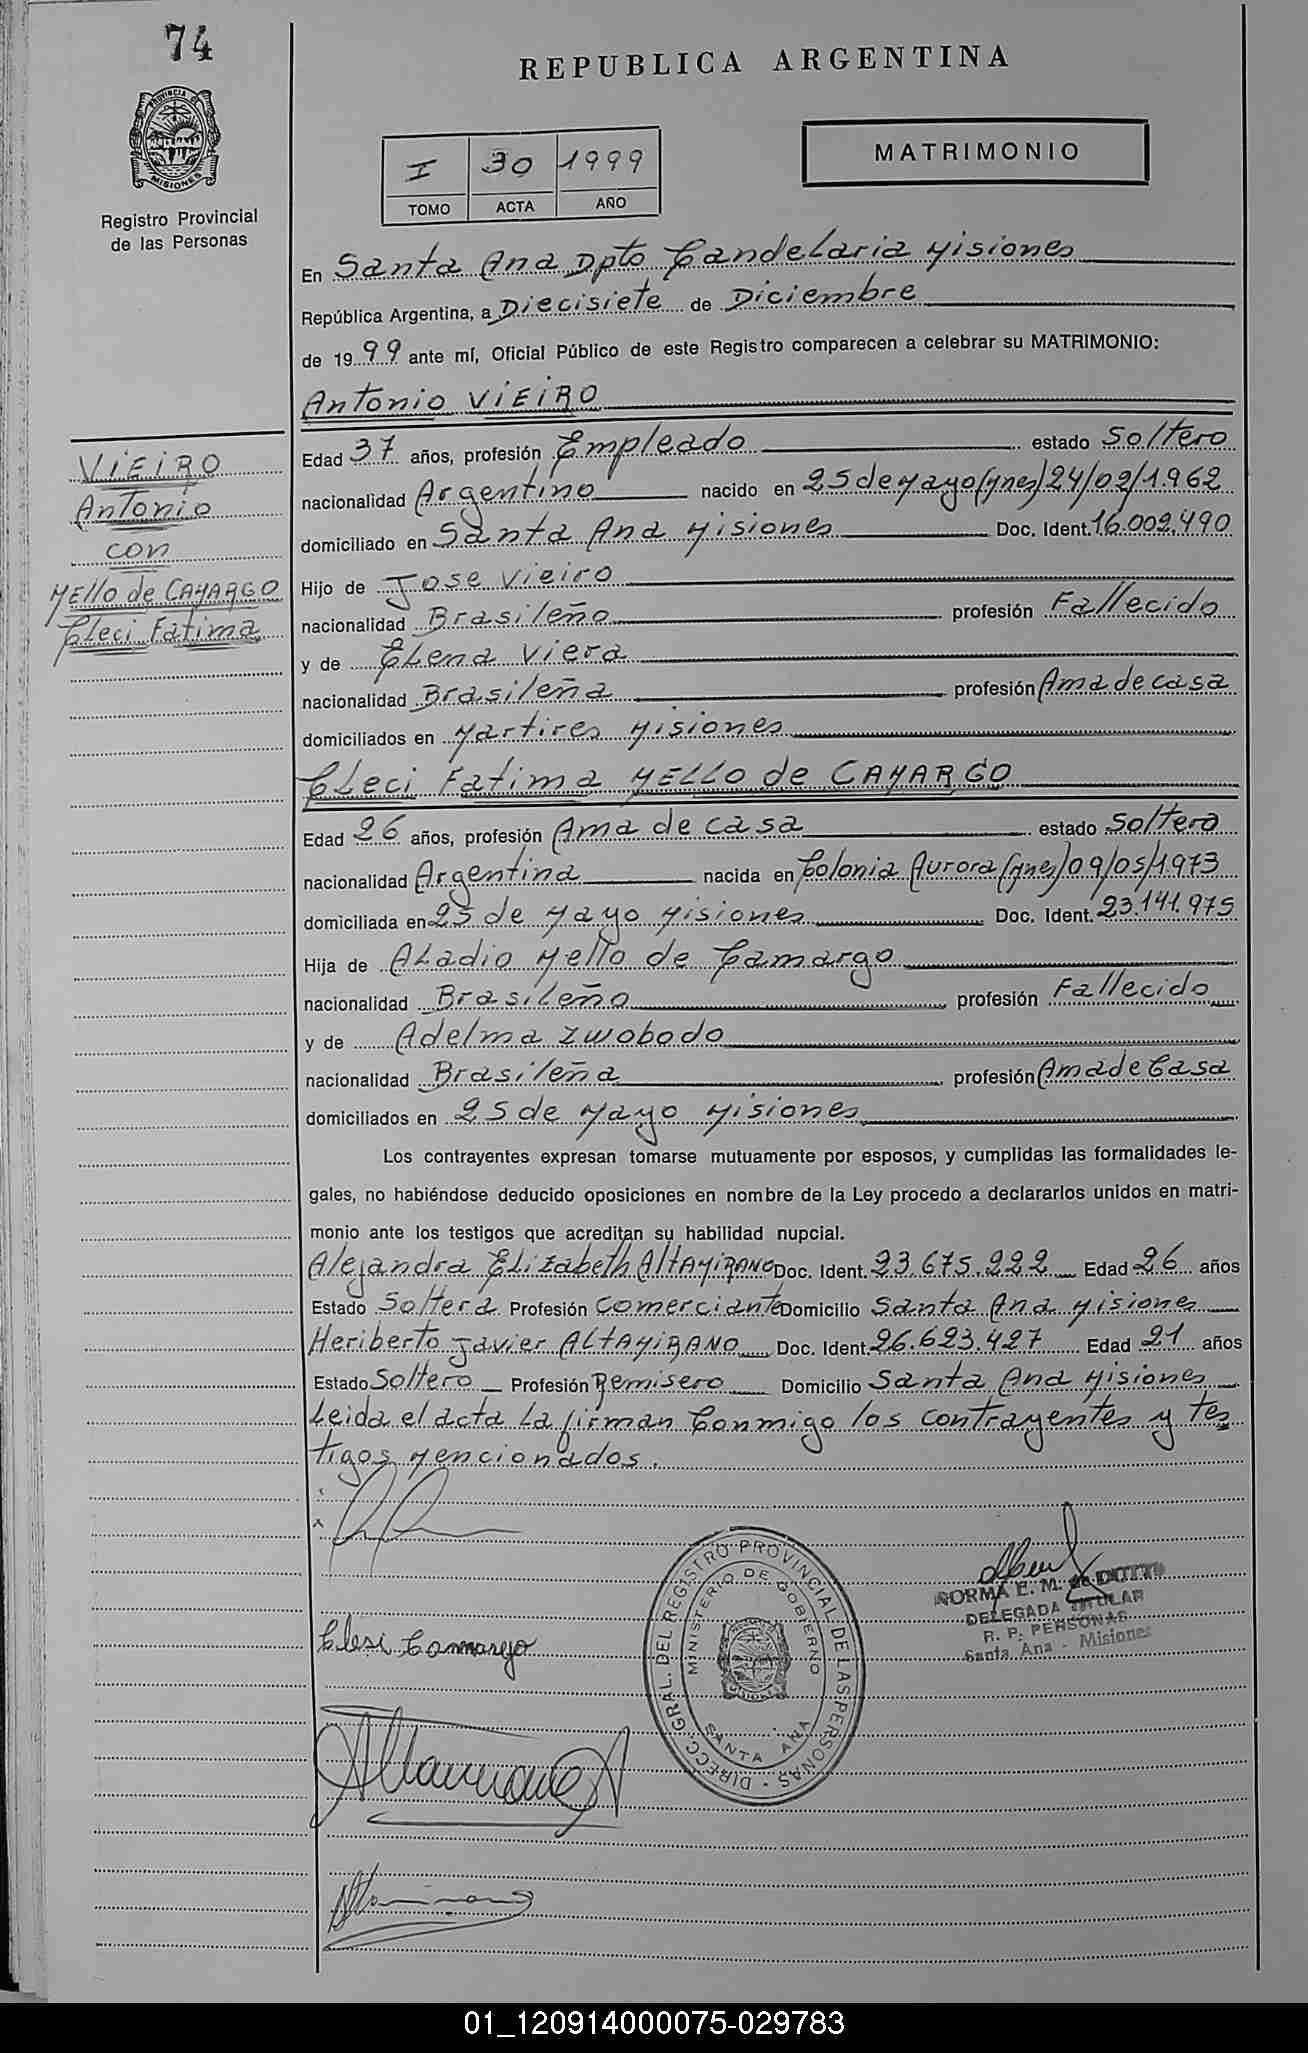 74
REPUBLICA ARGENTINA
PROVINCIA DE
MISIONES
Registro Provincial
de las Personas
I 30 1999
TOMO ACTA AÑO
MATRIMONIO
En Santa Ana Dpto Candelaria Misiones
República Argentina, a Diecisiete de Diciembre
de 1999 ante mí, Oficial Público de este Registro comparecen a celebrar su MATRIMONIO:
Antonio VIEIRO
VIEIRO
Antonio
con
MEllo de CAMARGO
Cleci Fatima
Edad 37 años, profesión Empleado estado Soltero
nacionalidad Argentino nacido en 25 de Mayo (Mnes) 24/02/1.962
domiciliado en Santa Ana Misiones Doc. Ident. 16.002.490
Hijo de Jose Vieiro
nacionalidad Brasileño profesión Fallecido
y de Elena Viera
nacionalidad Brasileña profesión Ama de casa
domiciliados en Martires Misiones
Cleci Fatima MELLO de CAMARGO
Edad 26 años, profesión Ama de casa estado Soltera
nacionalidad Argentina nacida en Colonia Aurora (Mnes) 09/05/1.973
domiciliada en 25 de Mayo Misiones Doc. Ident. 23.141.975
Hija de Aladio Mello de Camargo
nacionalidad Brasileño profesión Fallecido
y de Adelma Zwobodo
nacionalidad Brasileña profesión Ama de Casa
domiciliados en 25 de Mayo Misiones
Los contrayentes expresan tomarse mutuamente por esposos, y cumplidas las formalidades le-
gales, no habiéndose deducido oposiciones en nombre de la Ley procedo a declararlos unidos en matri-
monio ante los testigos que acreditan su habilidad nupcial.
Alejandra Elizabeth AltAMIRANO Doc. Ident. 23.675.222 Edad 26 años
Estado Soltera Profesión Comerciante Domicilio Santa Ana Misiones
Heriberto Javier AltAMIRANO Doc. Ident. 26.623.427 Edad 21 años
Estado Soltero Profesión Remisero Domicilio Santa Ana Misiones
Leida el acta la firman Conmigo los contrayentes y tes
tigos Mencionados.
DIRECC. GRAL. DEL REGISTRO PROVINCIAL DE LAS PERSONAS
MINISTERIO DE GOBIERNO
SANTA ANA
NORMA E. M. de DOTTO
DELEGADA TITULAR
R. P. PERSONAS
Santa Ana - Misiones
Clesi Cammargo
01_120914000075-029783